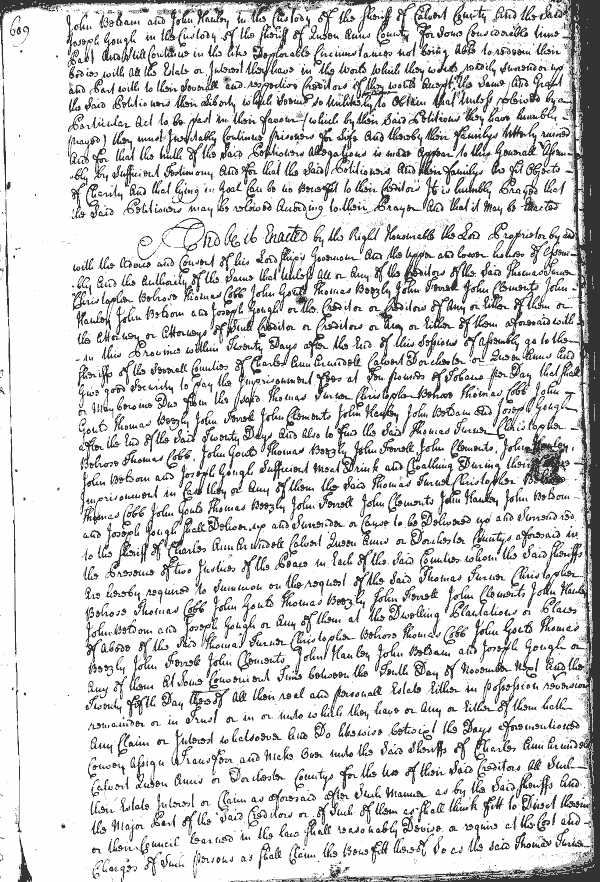 609
John Belsom and John Hanley in the Custody of the Sheriff of Calvert County And the Said
Joseph Gough in the Custody of the Sheriff of Queen Anns County for Some Considerable time
Past And Still Continue in the like Deplorable Circumstances not being Able to redeem their
bodies with all the Estate or Interest they have in the World which they would readily Surrender up
and Part with to their Severall and respective Creditors if they would Accept the Same And Grant
the Said Petitioners their Liberty which Seems So unlikely to Obtain that unless releived by a
Particular Act to be past in their favour (which by their Said Petitions they have humbly
prayed) they must Inevitably Continue prisoners for Life And thereby their familys utterly ruined
And for that the truth of the Said Petitioners Allegations is made Appear to this Generall Assem-
bly by Sufficient Testimony And for that the Said Petitioners And their familys Are fit Objects
of Charity And that lying in Goal Can be no Benefit to their Creditors It is humbly Prayed that
the Said Petitioners may be releived According to their Prayer And that it May be Enacted
And be it Enacted by the Right Honourable the Lord Proprietor by and
with the Advice and Consent of his Lordships Governour And the upper and lower houses of Assem-
bly And the Authority of the Same that unless All or Any of the Creditors of the Said Thomas Turner
Christopher Belrose Thomas Cobb John Gout Thomas Beezly John Ferrell John Clements John
Hanley John Belsom and Joseph Gough or the Creditor or Creditors of Any or Either of them or
the Attorney or Attorneys of Such Creditor or Creditors or Any or Either of them aforesaid with-
in this Province within Twenty Days after the End of this Sessions of Assembly go to the
Sheriffs of the Severall Counties of Charles Ann Arundell Calvert Dorchester or Queen Anns And
Give good Security to Pay the Imprisonment fees at Ten pounds of Tobacco per Day that shall
or May become Due from the said Thomas Turner Christopher Belrose Thomas Cobb John
Gout Thomas Beezly John Ferrell John Clements John Hanley John Belsom and Joseph Gough
after the End of the Said Twenty Days And also to find the Said Thomas Turner Christopher
Belrose Thomas Cobb John Gout Thomas Beezly John Ferrell John Clements John Hanley
John Belsom and Joseph Gough Sufficient Meat Drink and Cloathing During their
Imprisonment in Case they or Any of them the Said Thomas Turner Christopher Belrose
Thomas Cobb John Gout Thomas Beezly John Ferrell John Clements John Hanley John Belsom
and Joseph Gough Shall Deliver up and Surrender or Cause to be Delivered up and Surrendred
to the Sheriff of Charles Ann Arundell Calvert Queen Anns or Dorchester Countys aforesaid in
the Presence of two Justices of the Peace in Each of the Said Counties whom the Said Sheriffs
are hereby required to Summon on the request of the Said Thomas Turner Christopher
Belrose Thomas Cobb John Gout Thomas Beezly John Ferrell John Clements John Hanley
John Belsom and Joseph Gough or Any of them at the Dwelling Plantations or Places
of abode of the Said Thomas Turner Christopher Belrose Thomas Cobb John Gout Thomas
Beezly John Ferrell John Clements John Hanley John Belsom and Joseph Gough or
Any of them At Some Convenient Time between the Tenth Day of November Next And the
Twenty fifth Day thereof All their real and personall Estate Either in possession reversion
remainder or in Trust or in or unto which they have or Any or Either of them hath
Any Claim or Interest whatsoever And Do likewise betwixt the Days aforementioned
Convey Assign Transfer and Make Over unto the Said Sheriffs of Charles Ann Arundell
Calvert Queen Anns or Dorchester Countys for the Use of their Said Creditors All Such
their Estate Interest or Claim as aforesaid after Such Manner as by the Said Sheriffs And
the Major Part of the Said Creditors or of Such of them as Shall think fitt to Direct therein
or their Council learned in the law Shall reasonably Devise or require at the Cost and
Charges of Such Persons as Shall Claim the Benefitt thereof So as the said Thomas Turner